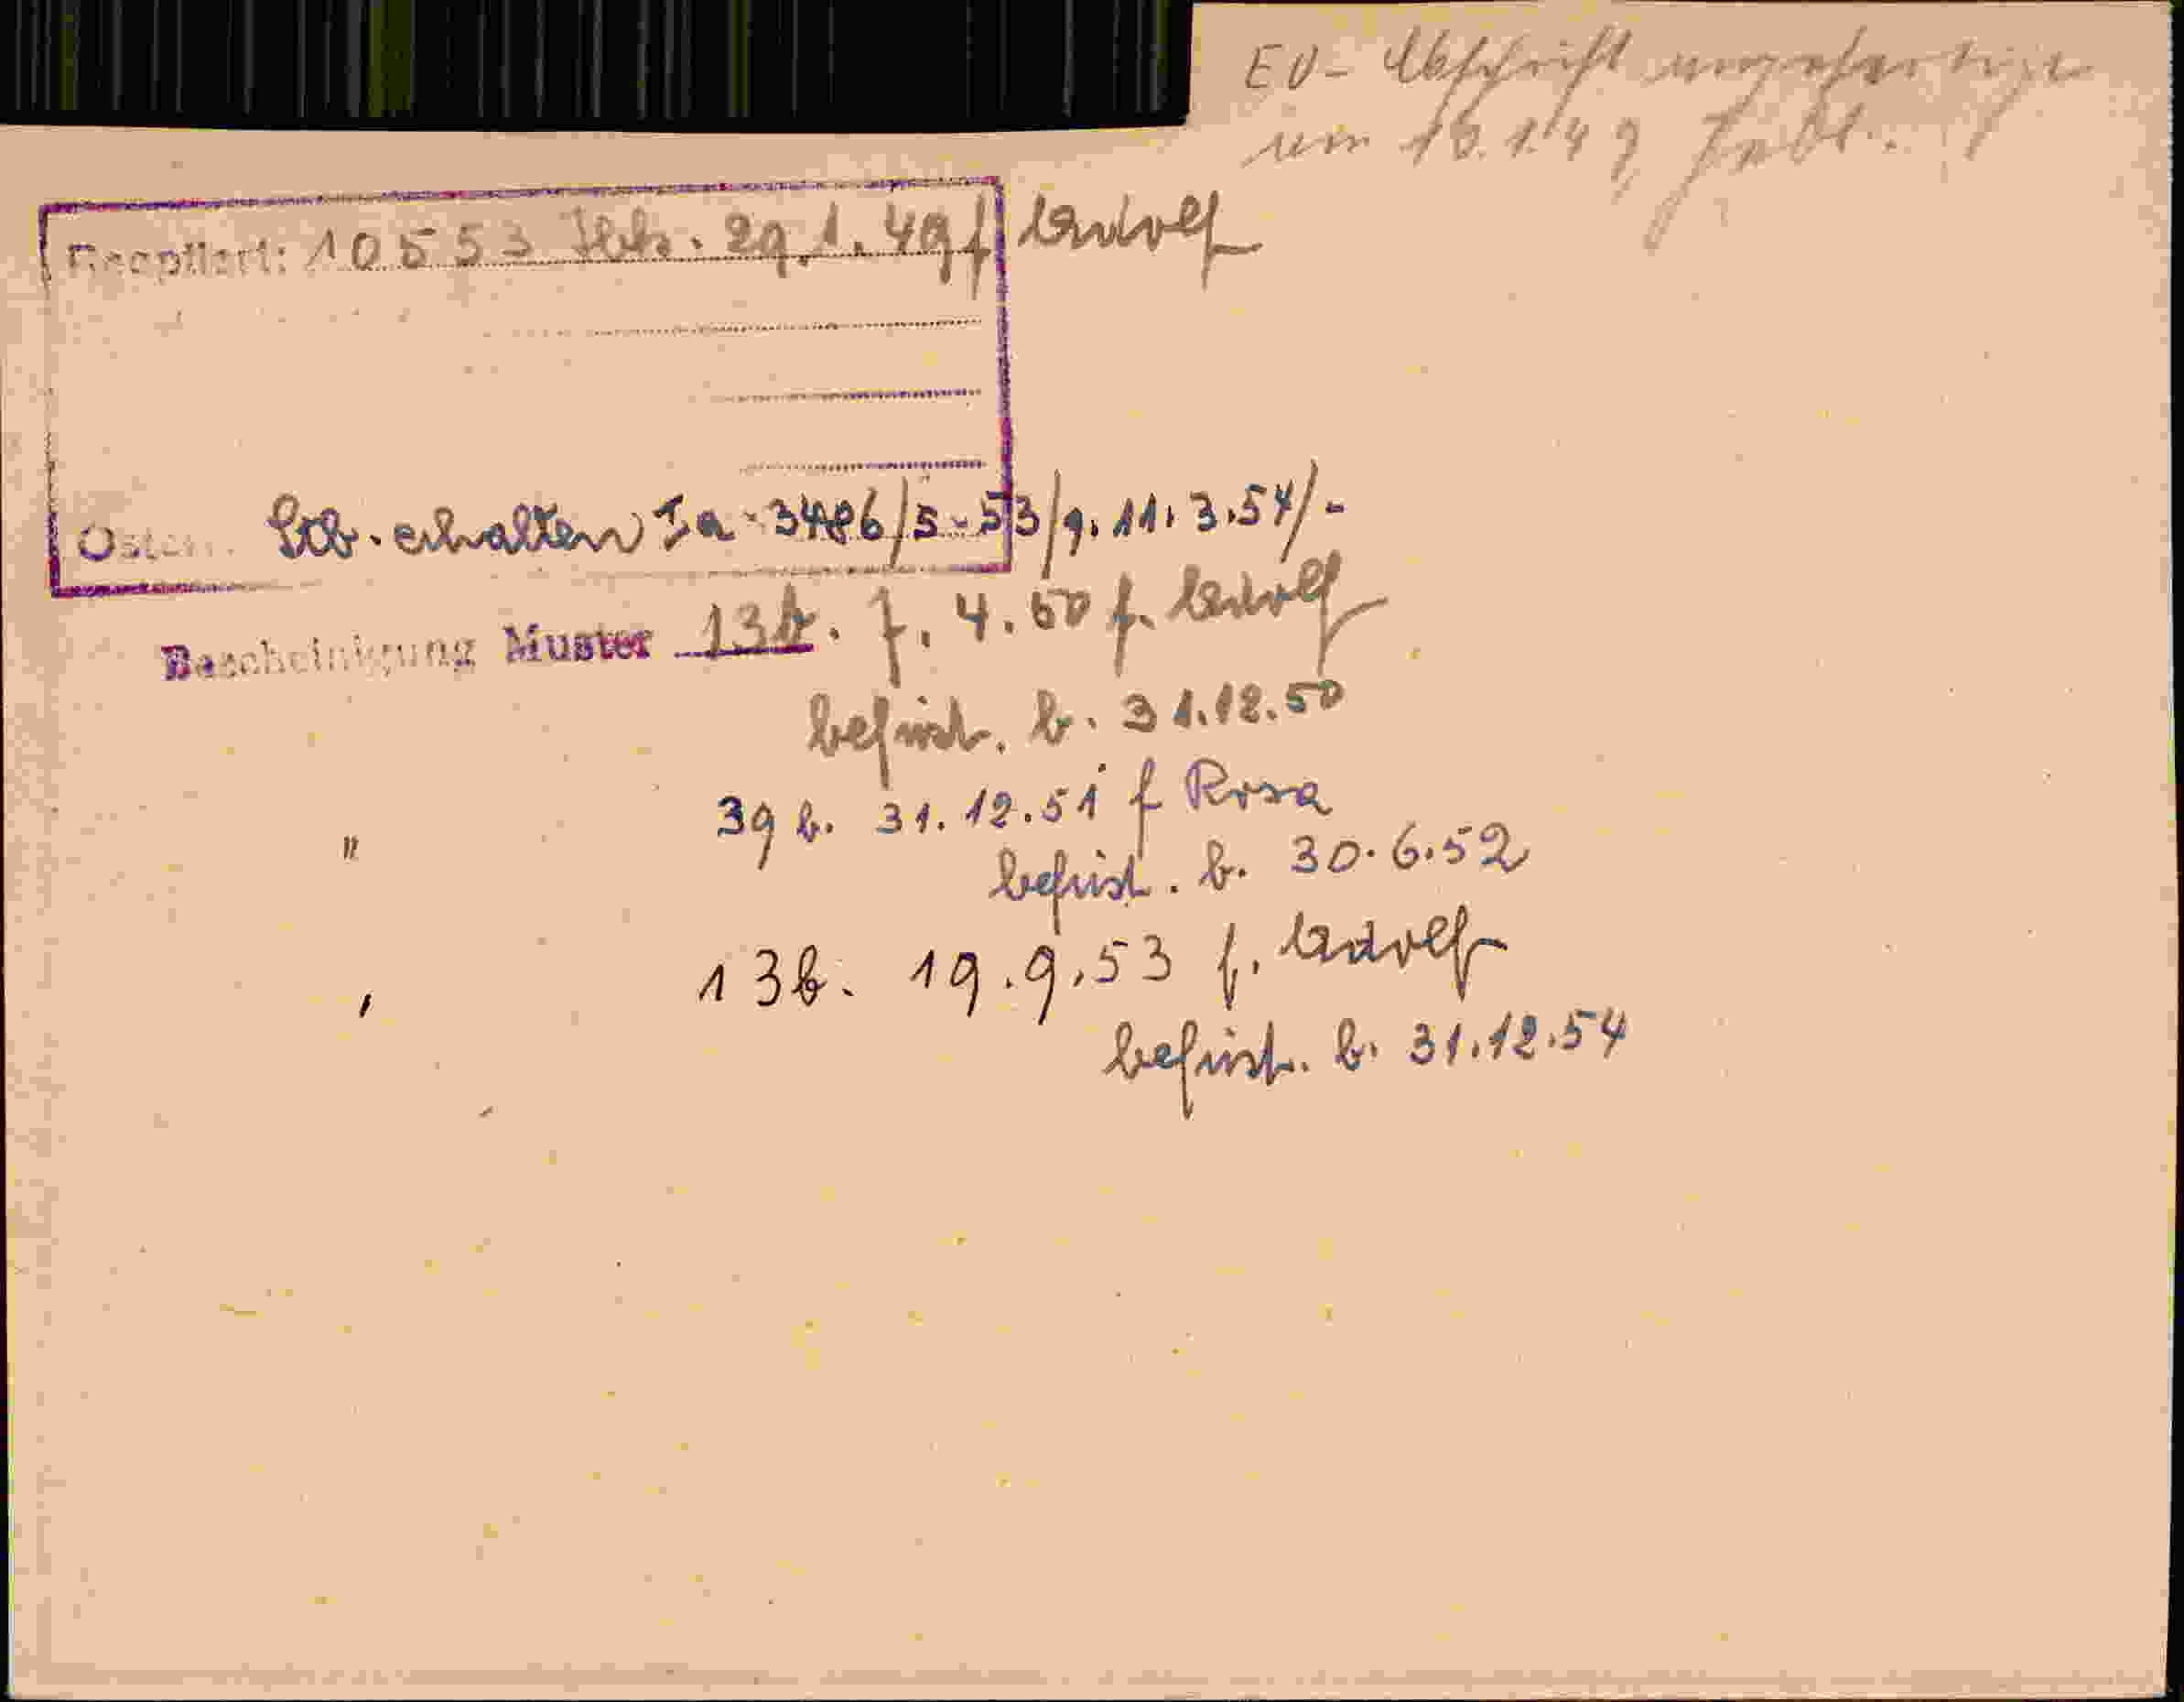 EV- Abschrift ausgefertigt
am 10.1.49
Reoptiert: 10553 29.1.49 f Adolf
Österr. Stb. erhalten Ia-3486/5-53/9. 11.3.54/-
Bescheinigung Muster 13b. 7. 4. 50 f. Adolf
befrist. b. 31.12.50
" 39 b. 31.12.51 f Rosa
befrist. b. 30.6.52
" 13b. 19.9.53 f. Adolf
befrist. b. 31.12.54